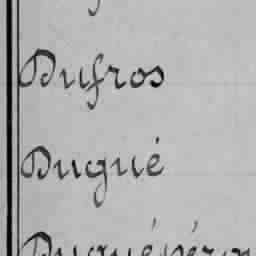 Dufros
Dugué